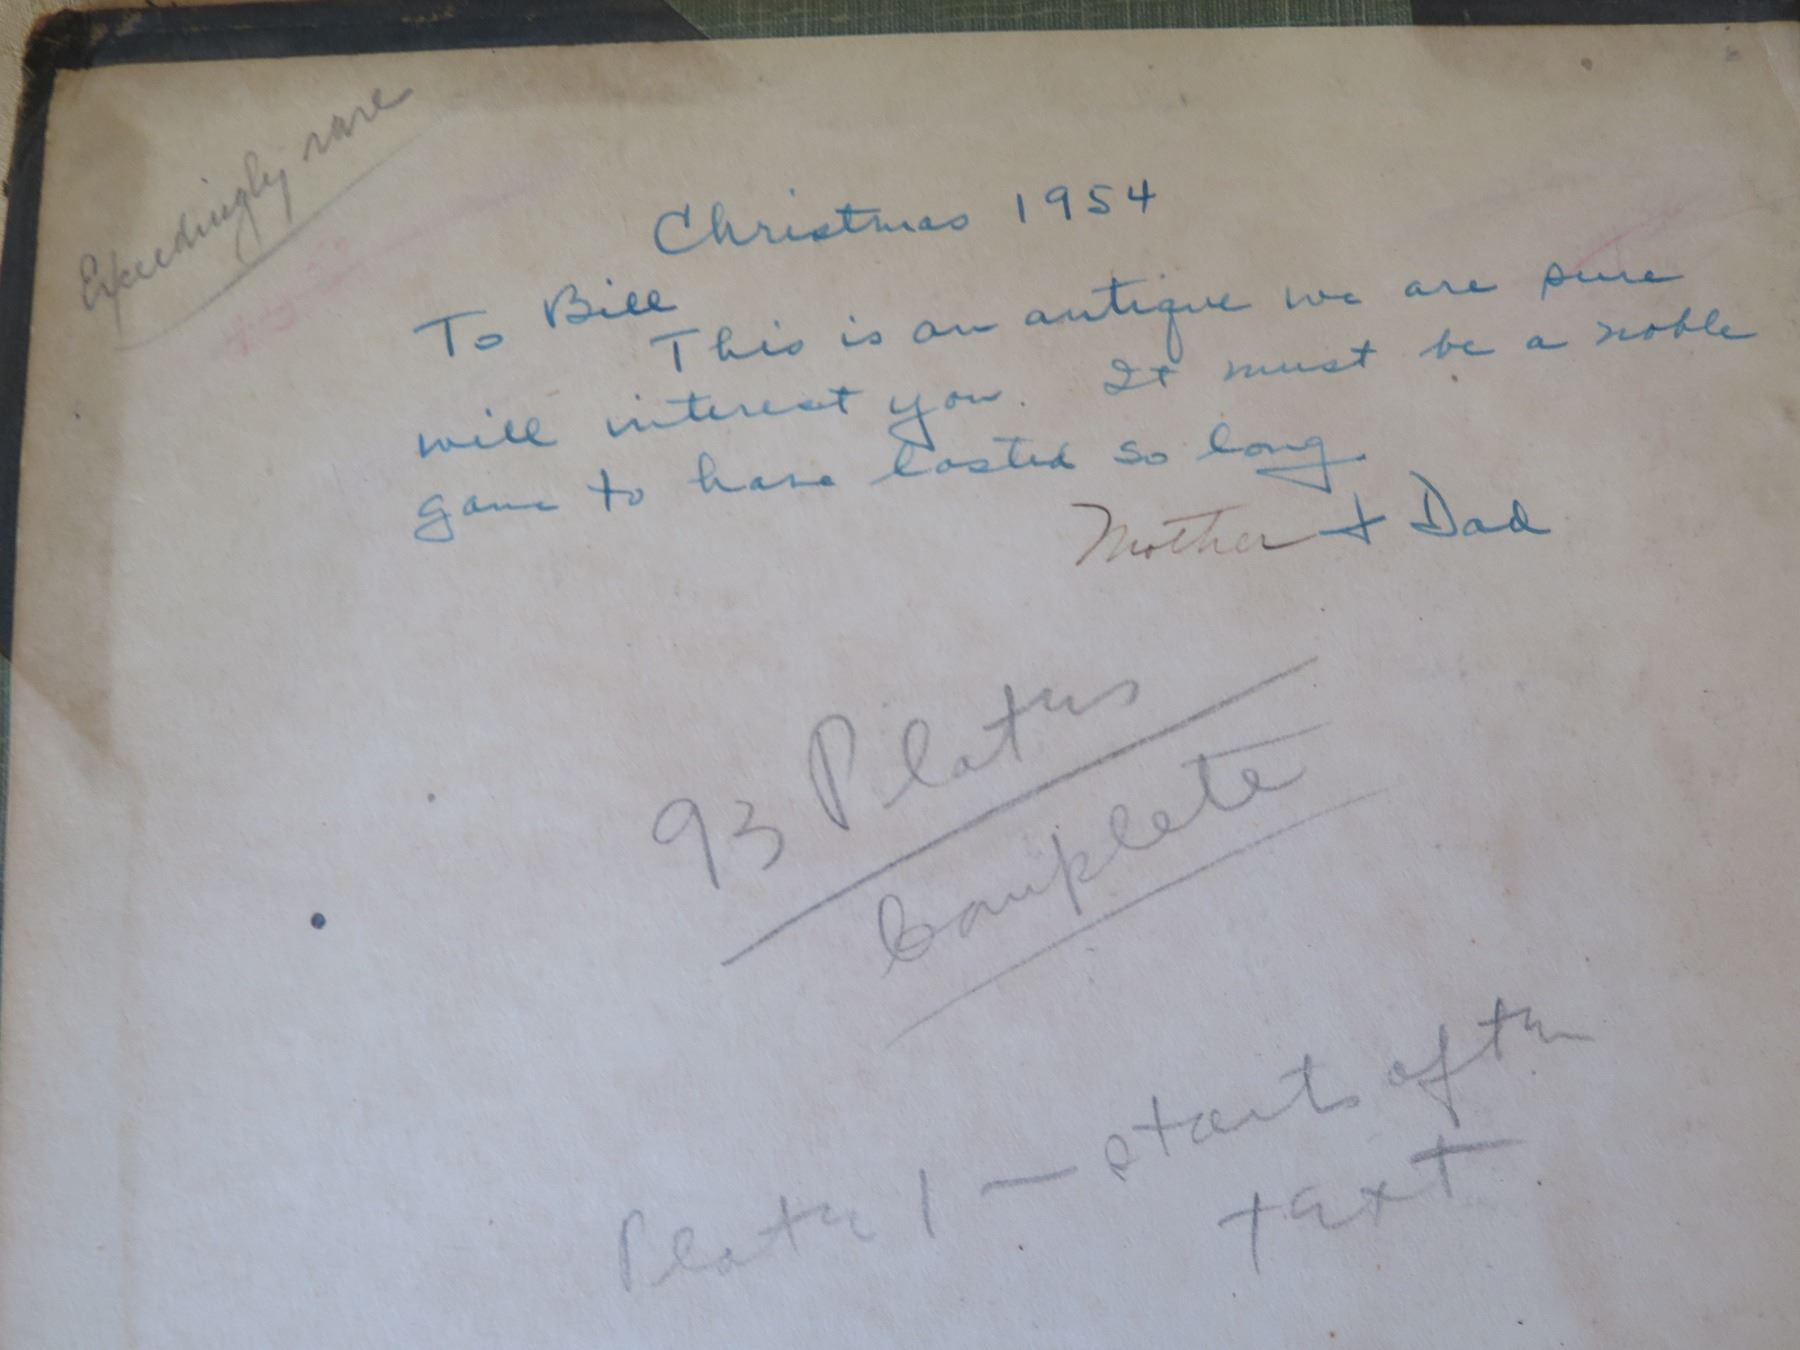 Exceedingly rare
Christmas 1954
To Bill
This is an antique we are sure
will interest you. It must be a noble
game to have lasted so long.
Mother + Dad
93 Plates
Complete
Plate 1 — starts after
text